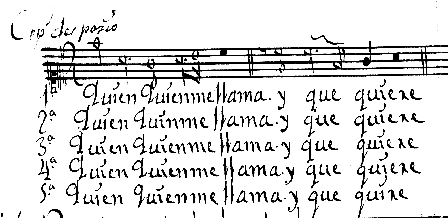 Cop.ˢ despaçio
1ª Quien Quienme llama. y que quiere
2ª Quien Quinme llama. y que quiere
3ª Quien Quienme llama. y que quiere
4ª Quien Quienme llama. y que quiere
5ª Quien Quienme llama. y que quire